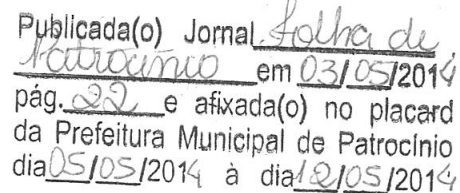 Publicada(o) Jornal Folha de
Patrocínio em 03/05/2014
pág. 22 e afixada(o) no placard
da Prefeitura Municipal de Patrocínio
dia 05/05/2014 à dia 12/05/2014